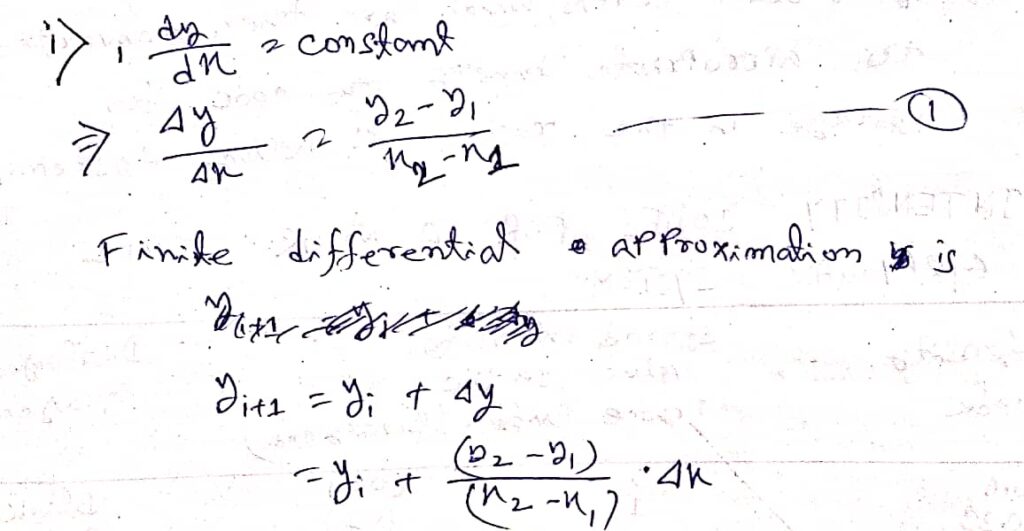 i), dy/dx = constant
⇒ Δy/Δx = (y2 - y1)/(x2 - x1) ——— ①
Finite differential approximation is
yi+1 = yi + Δy
= yi + (y2 - y1)/(x2 - x1) · Δx